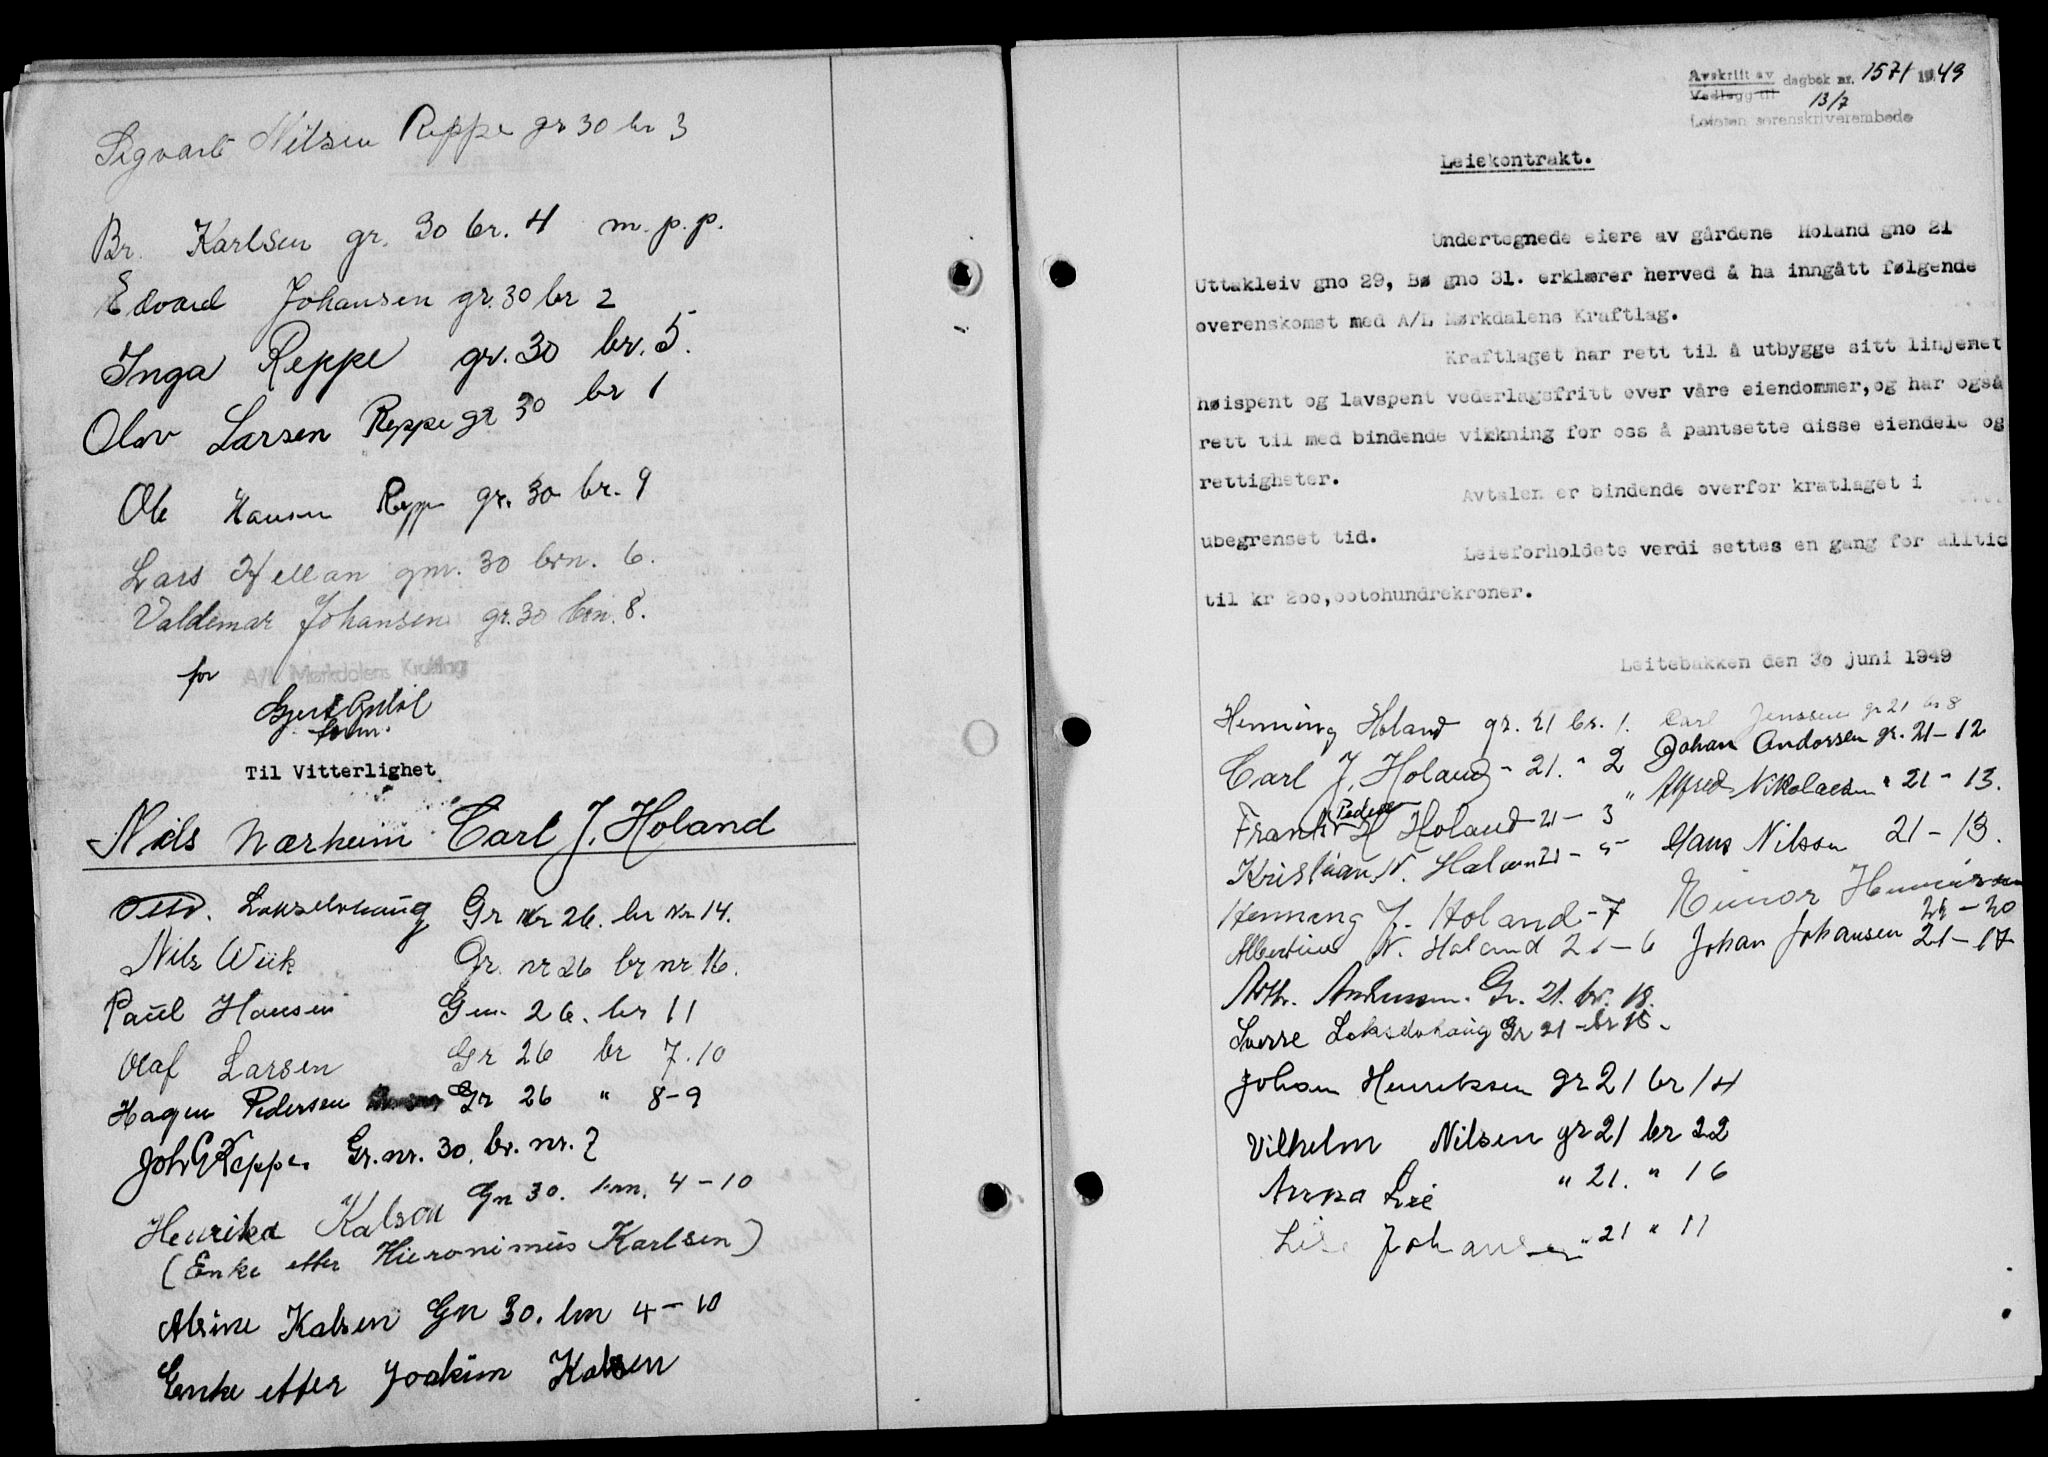 Sigvart Nilsen Reppe gr 30 br 3
Br. Karlsen gr. 30 br. 4 m. p. p.
Edvard Johansen gr. 30 br 2
Inga Reppe gr. 30 br. 5.
Olav Larsen Reppe gr 30 br 1
Ole Hansen Reppe gr. 30 br. 9
Lars Hellan gnr. 30 brn. 6.
Valdemar Johansen gr. 30 brn. 8.
for A/L Mørkdalens Kraftlag
form.
Til Vitterlighet
Nils Nærheim Carl J. Holand
Lokseldhaug Gr Nr 26. br Nr. 14.
Nils Wiik Gr. nr 26 br nr 16.
Paul Hansen Gnr. 26. br 11
Olaf Larsen Gr 26 br 7.10
Hagen Pedersen Gr 26 " 8-9
Joh G Reppe. Gr. nr. 30, br. nr. 7
Henrika Kalsen Gn 30. brn. 4-10
(Enke etter Hieronimus Karlsen)
Alvine Kalsen Gn 30. brn 4-10
Enke etter Joakim Kalsen
Avskrift av dagbok nr. 1571 1949
Vedlegg til 13/7
Lofoten sorenskriverembede
Leiekontrakt.
Undertegnede eiere av gårdene Holand gno 21
Uttakleiv gno 29, Bø gno 31. erklærer herved å ha inngått følgende
overenskomst med A/L Mørkdalens Kraftlag.
Kraftlaget har rett til å utbygge sitt linjenet
høispent og lavspent vederlagsfritt over våre eiendommer, og har også
rett til med bindende vikkning for oss å pantsette disse eiendele og
rettigheter.
Avtalen er bindende overfor kratlaget i
ubegrenset tid.
Leieforholdets verdi settes en gang for alltid
til kr 200,ootohundrekroner.
Leitebakken den 30 juni 1949
Henning Holand gr. 21 br. 1. Carl Jenssen gr 21 br 8
Carl J. Holand - 21. - 2 Johan Andorsen gr. 21-12
Frank Peder H Holand 21 - 3 Alfred Nikolaisen " 21 - 13.
Kristian N. Holand 21 - 5 Hans Nilsen 21 - 13.
Henning J. Holand - 7 Einar Henriksen
21 - 20
Albertine N. Holand 21-6 Johan Johansen 21-17
Arth. Gr. 21. br. 18.
Sverre Lokseldhaug Gr 21 - br 15.
Johan Henriksen gr 21 br 14
Vilhelm Nilsen gr 21 br 22
Anna Lie " 21. " 16
Lise Johansen " 21 " 11